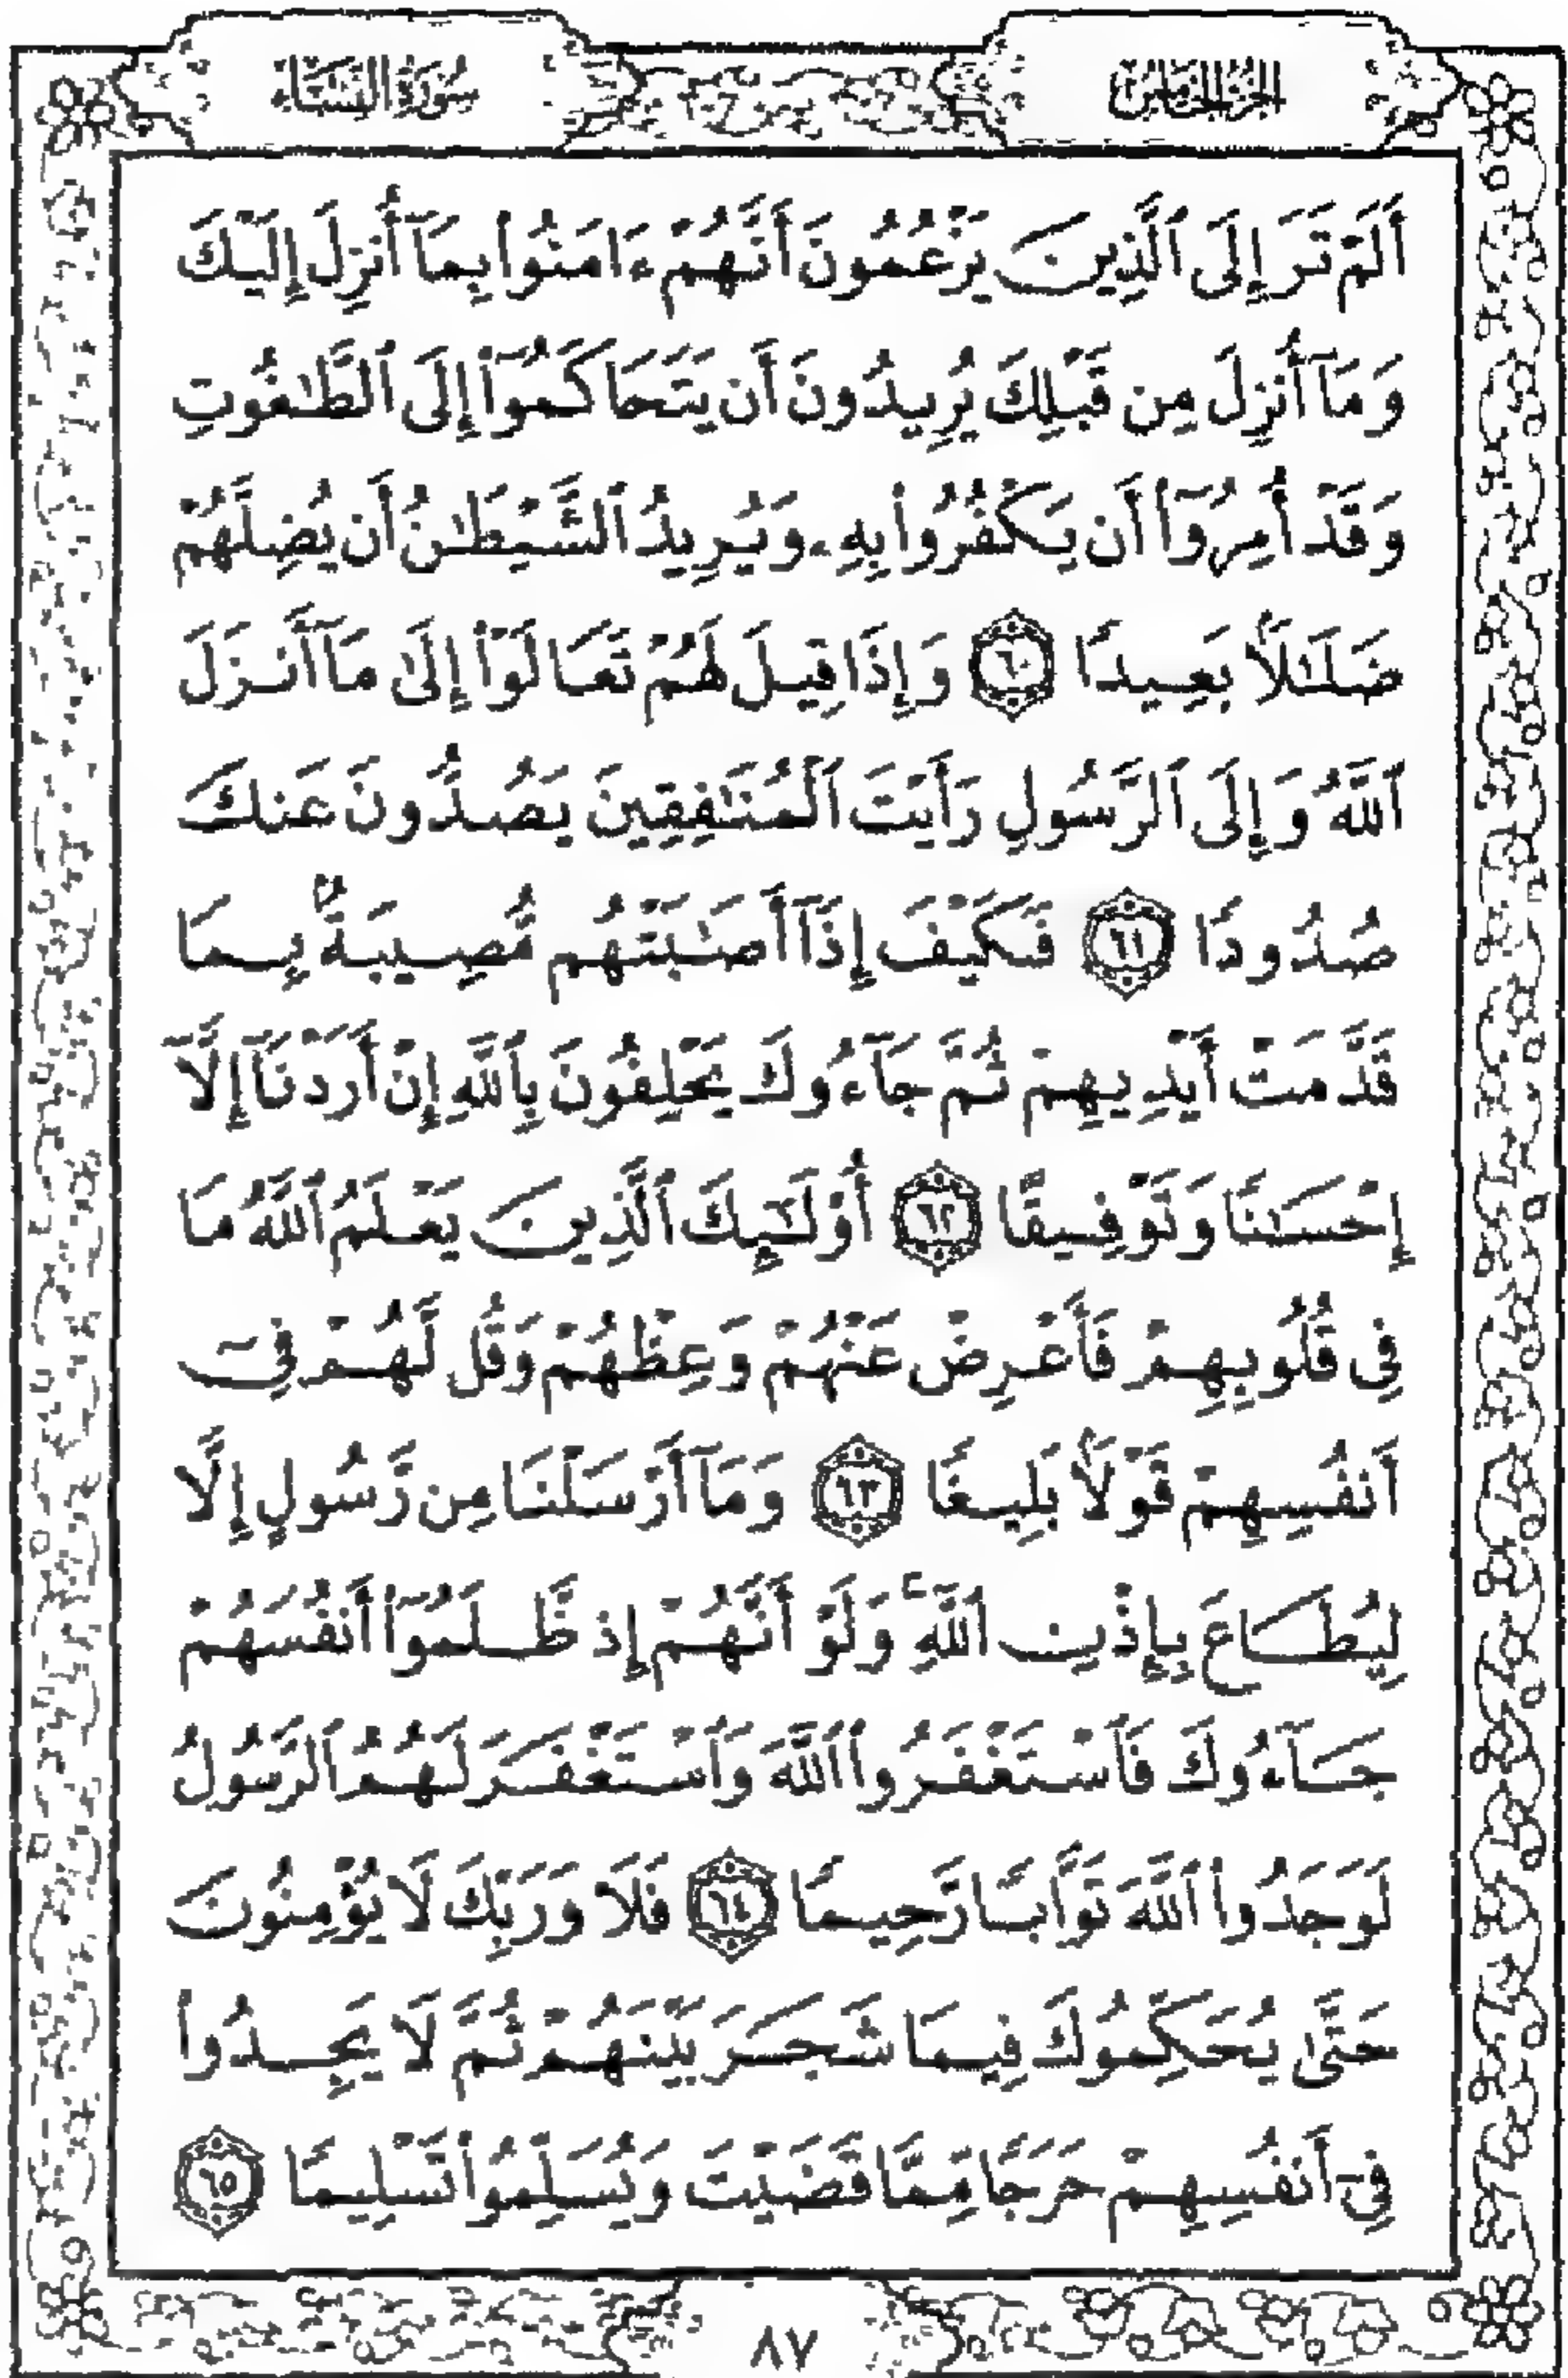 الجزء الخامس
سورة النساء
أَلَمْ تَرَ إِلَى ٱلَّذِينَ يَزْعُمُونَ أَنَّهُمْ ءَامَنُوا۟ بِمَآ أُنزِلَ إِلَيْكَ
وَمَآ أُنزِلَ مِن قَبْلِكَ يُرِيدُونَ أَن يَتَحَاكَمُوٓا۟ إِلَى ٱلطَّـٰغُوتِ
وَقَدْ أُمِرُوٓا۟ أَن يَكْفُرُوا۟ بِهِۦ وَيُرِيدُ ٱلشَّيْطَـٰنُ أَن يُضِلَّهُمْ
ضَلَـٰلًۢا بَعِيدًا ٦٠ وَإِذَا قِيلَ لَهُمْ تَعَالَوْا۟ إِلَىٰ مَآ أَنزَلَ
ٱللَّهُ وَإِلَى ٱلرَّسُولِ رَأَيْتَ ٱلْمُنَـٰفِقِينَ يَصُدُّونَ عَنكَ
صُدُودًا ٦١ فَكَيْفَ إِذَآ أَصَـٰبَتْهُم مُّصِيبَةٌۢ بِمَا
قَدَّمَتْ أَيْدِيهِمْ ثُمَّ جَآءُوكَ يَحْلِفُونَ بِٱللَّهِ إِنْ أَرَدْنَآ إِلَّآ
إِحْسَـٰنًا وَتَوْفِيقًا ٦٢ أُو۟لَـٰٓئِكَ ٱلَّذِينَ يَعْلَمُ ٱللَّهُ مَا
فِى قُلُوبِهِمْ فَأَعْرِضْ عَنْهُمْ وَعِظْهُمْ وَقُل لَّهُمْ فِىٓ
أَنفُسِهِمْ قَوْلًۢا بَلِيغًا ٦٣ وَمَآ أَرْسَلْنَا مِن رَّسُولٍ إِلَّا
لِيُطَاعَ بِإِذْنِ ٱللَّهِ ۚ وَلَوْ أَنَّهُمْ إِذ ظَّلَمُوٓا۟ أَنفُسَهُمْ
جَآءُوكَ فَٱسْتَغْفَرُوا۟ ٱللَّهَ وَٱسْتَغْفَرَ لَهُمُ ٱلرَّسُولُ
لَوَجَدُوا۟ ٱللَّهَ تَوَّابًا رَّحِيمًا ٦٤ فَلَا وَرَبِّكَ لَا يُؤْمِنُونَ
حَتَّىٰ يُحَكِّمُوكَ فِيمَا شَجَرَ بَيْنَهُمْ ثُمَّ لَا يَجِدُوا۟
فِىٓ أَنفُسِهِمْ حَرَجًا مِّمَّا قَضَيْتَ وَيُسَلِّمُوا۟ تَسْلِيمًا ٦٥
٨٧